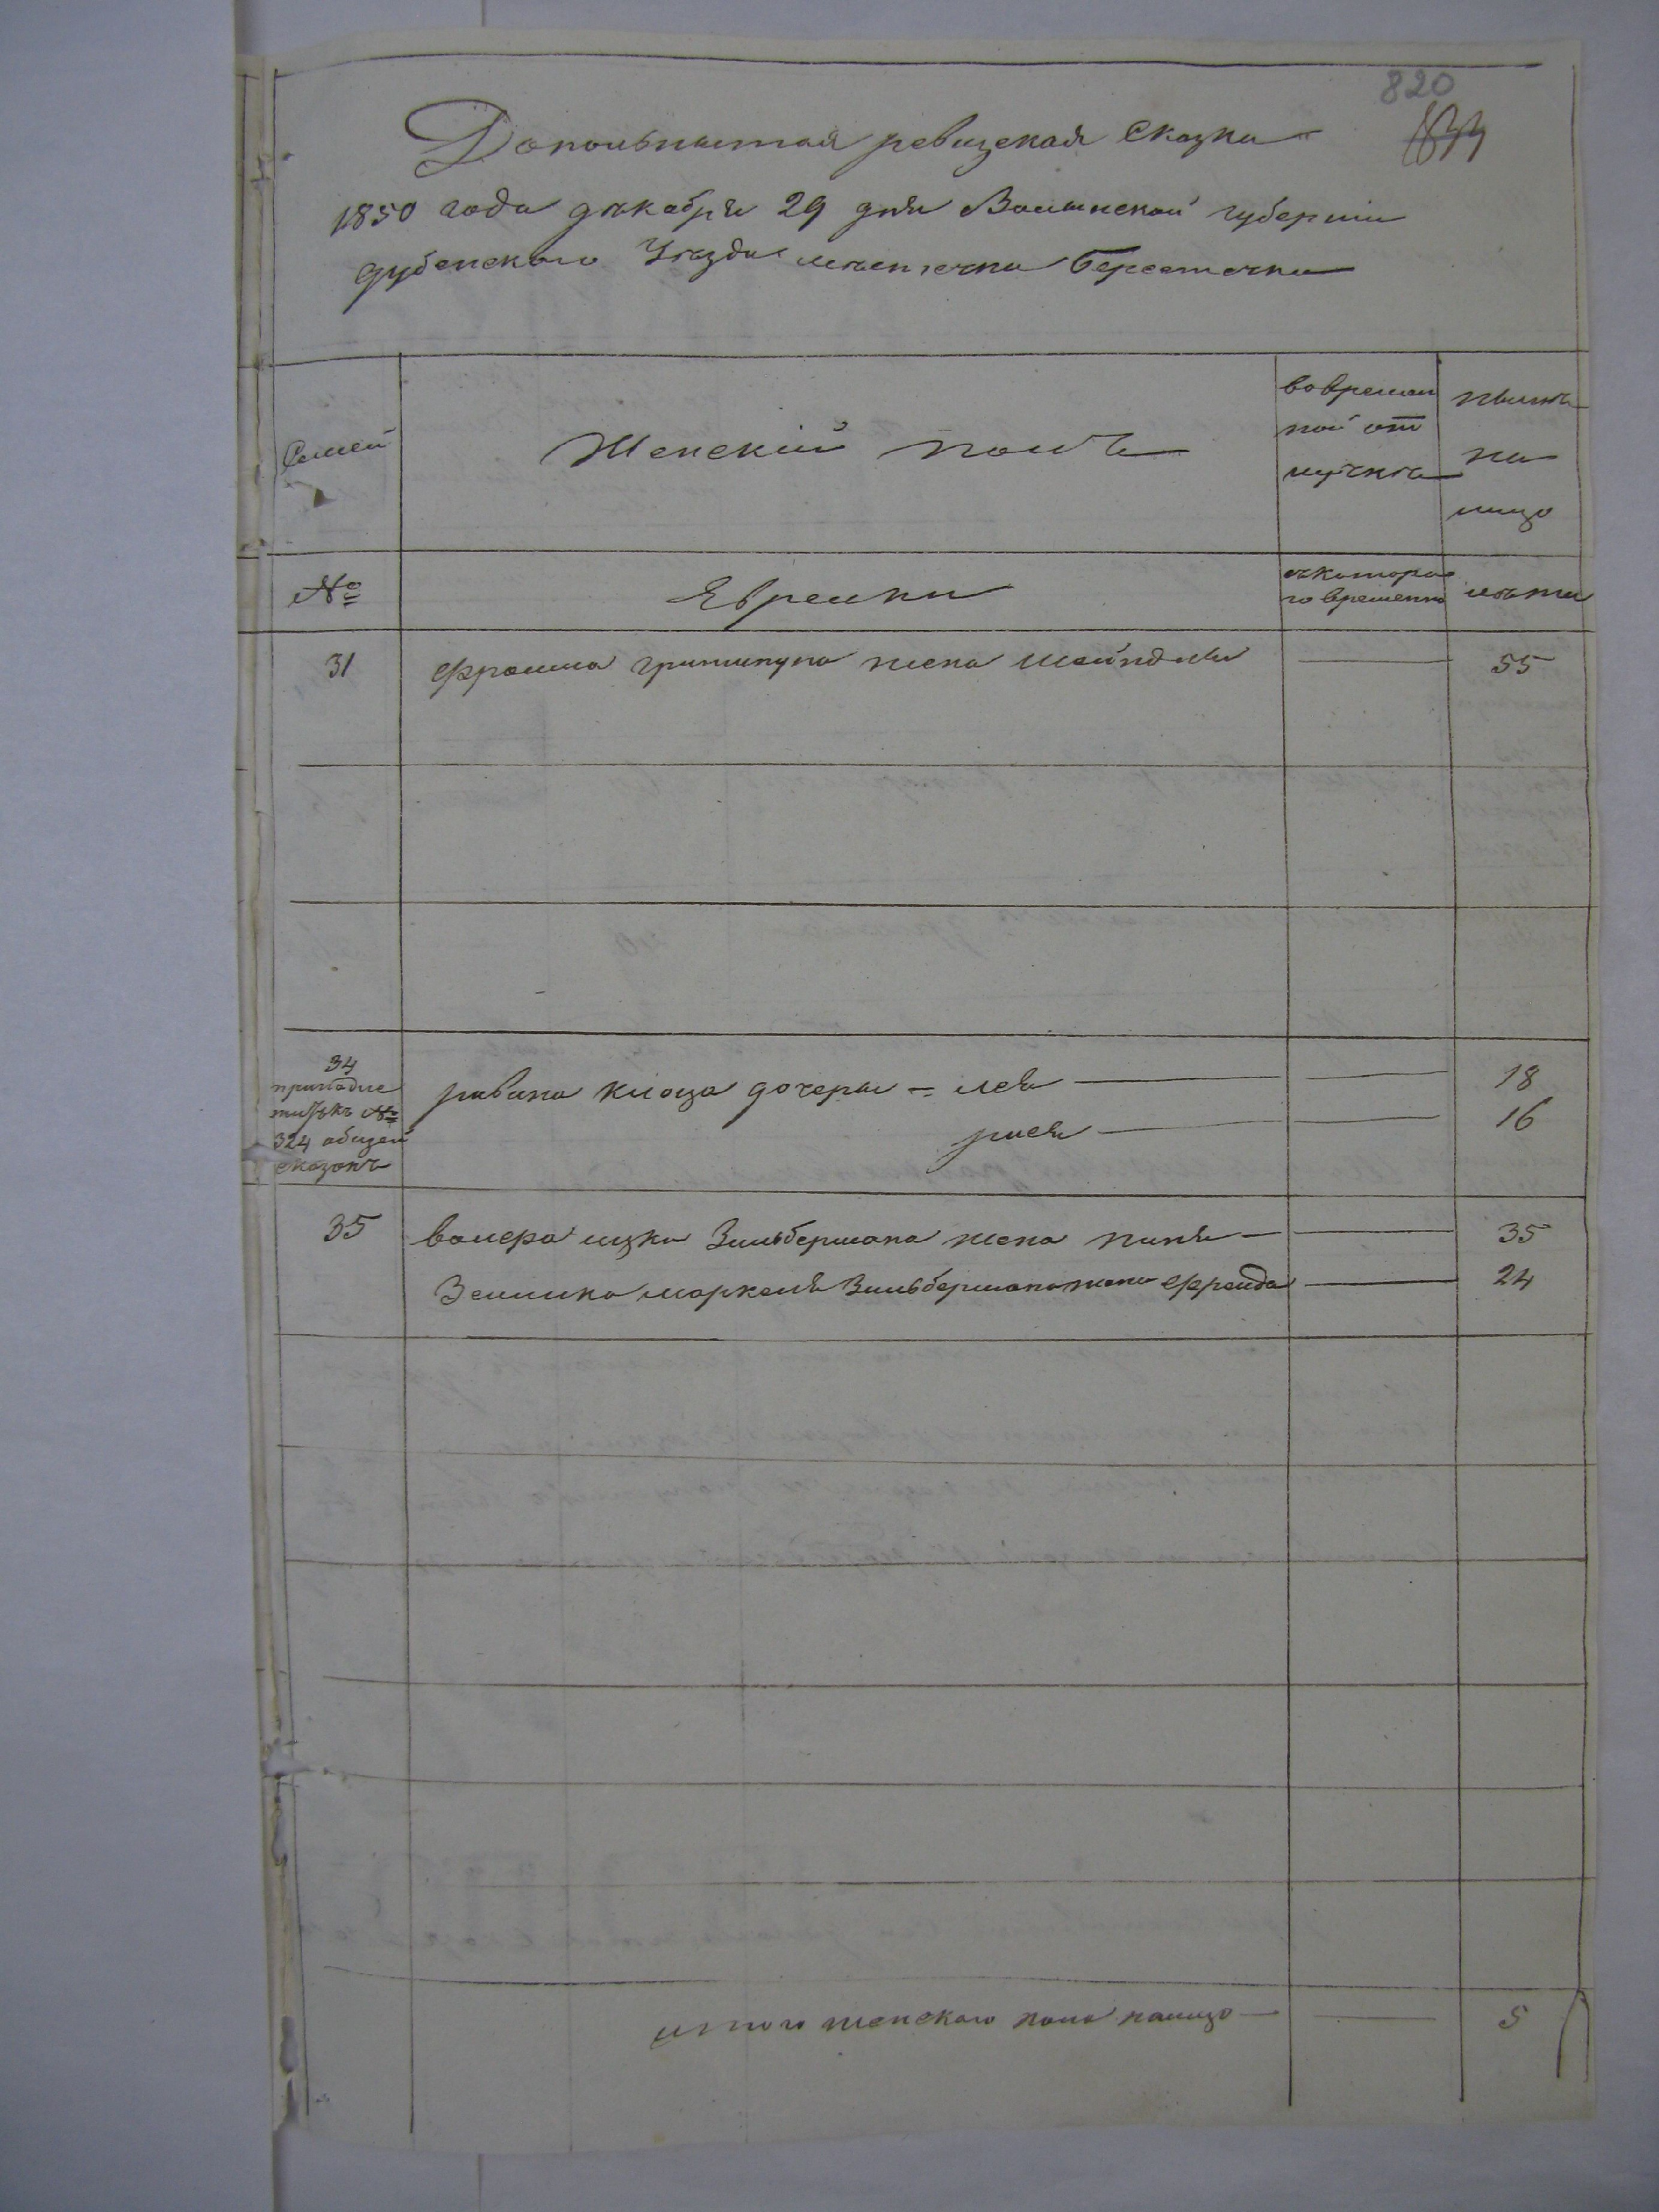 820
Дополнительная ревизская Сказка
1850 года декабря 29 дня Волынской губернии
Дубенского Уезда местечка Берестечка
Семей
Женский полъ
во времен
ной от
лучкѣ
нынѣ
на
лицо
№
Еврейки
съ которо
го времени
лѣта
31 Фроима жена Шейндля — 55
34
принадле
житъ къ №
324 общей
сказокъ
рувина клоца дочеры = лея — — 18
рися — — 16
35 волфа ицка Зильбермана жена пиня — — 35
Зелмина маркеля Зильбермана жена Фреида — 24
итого женского пола налицо — — 5